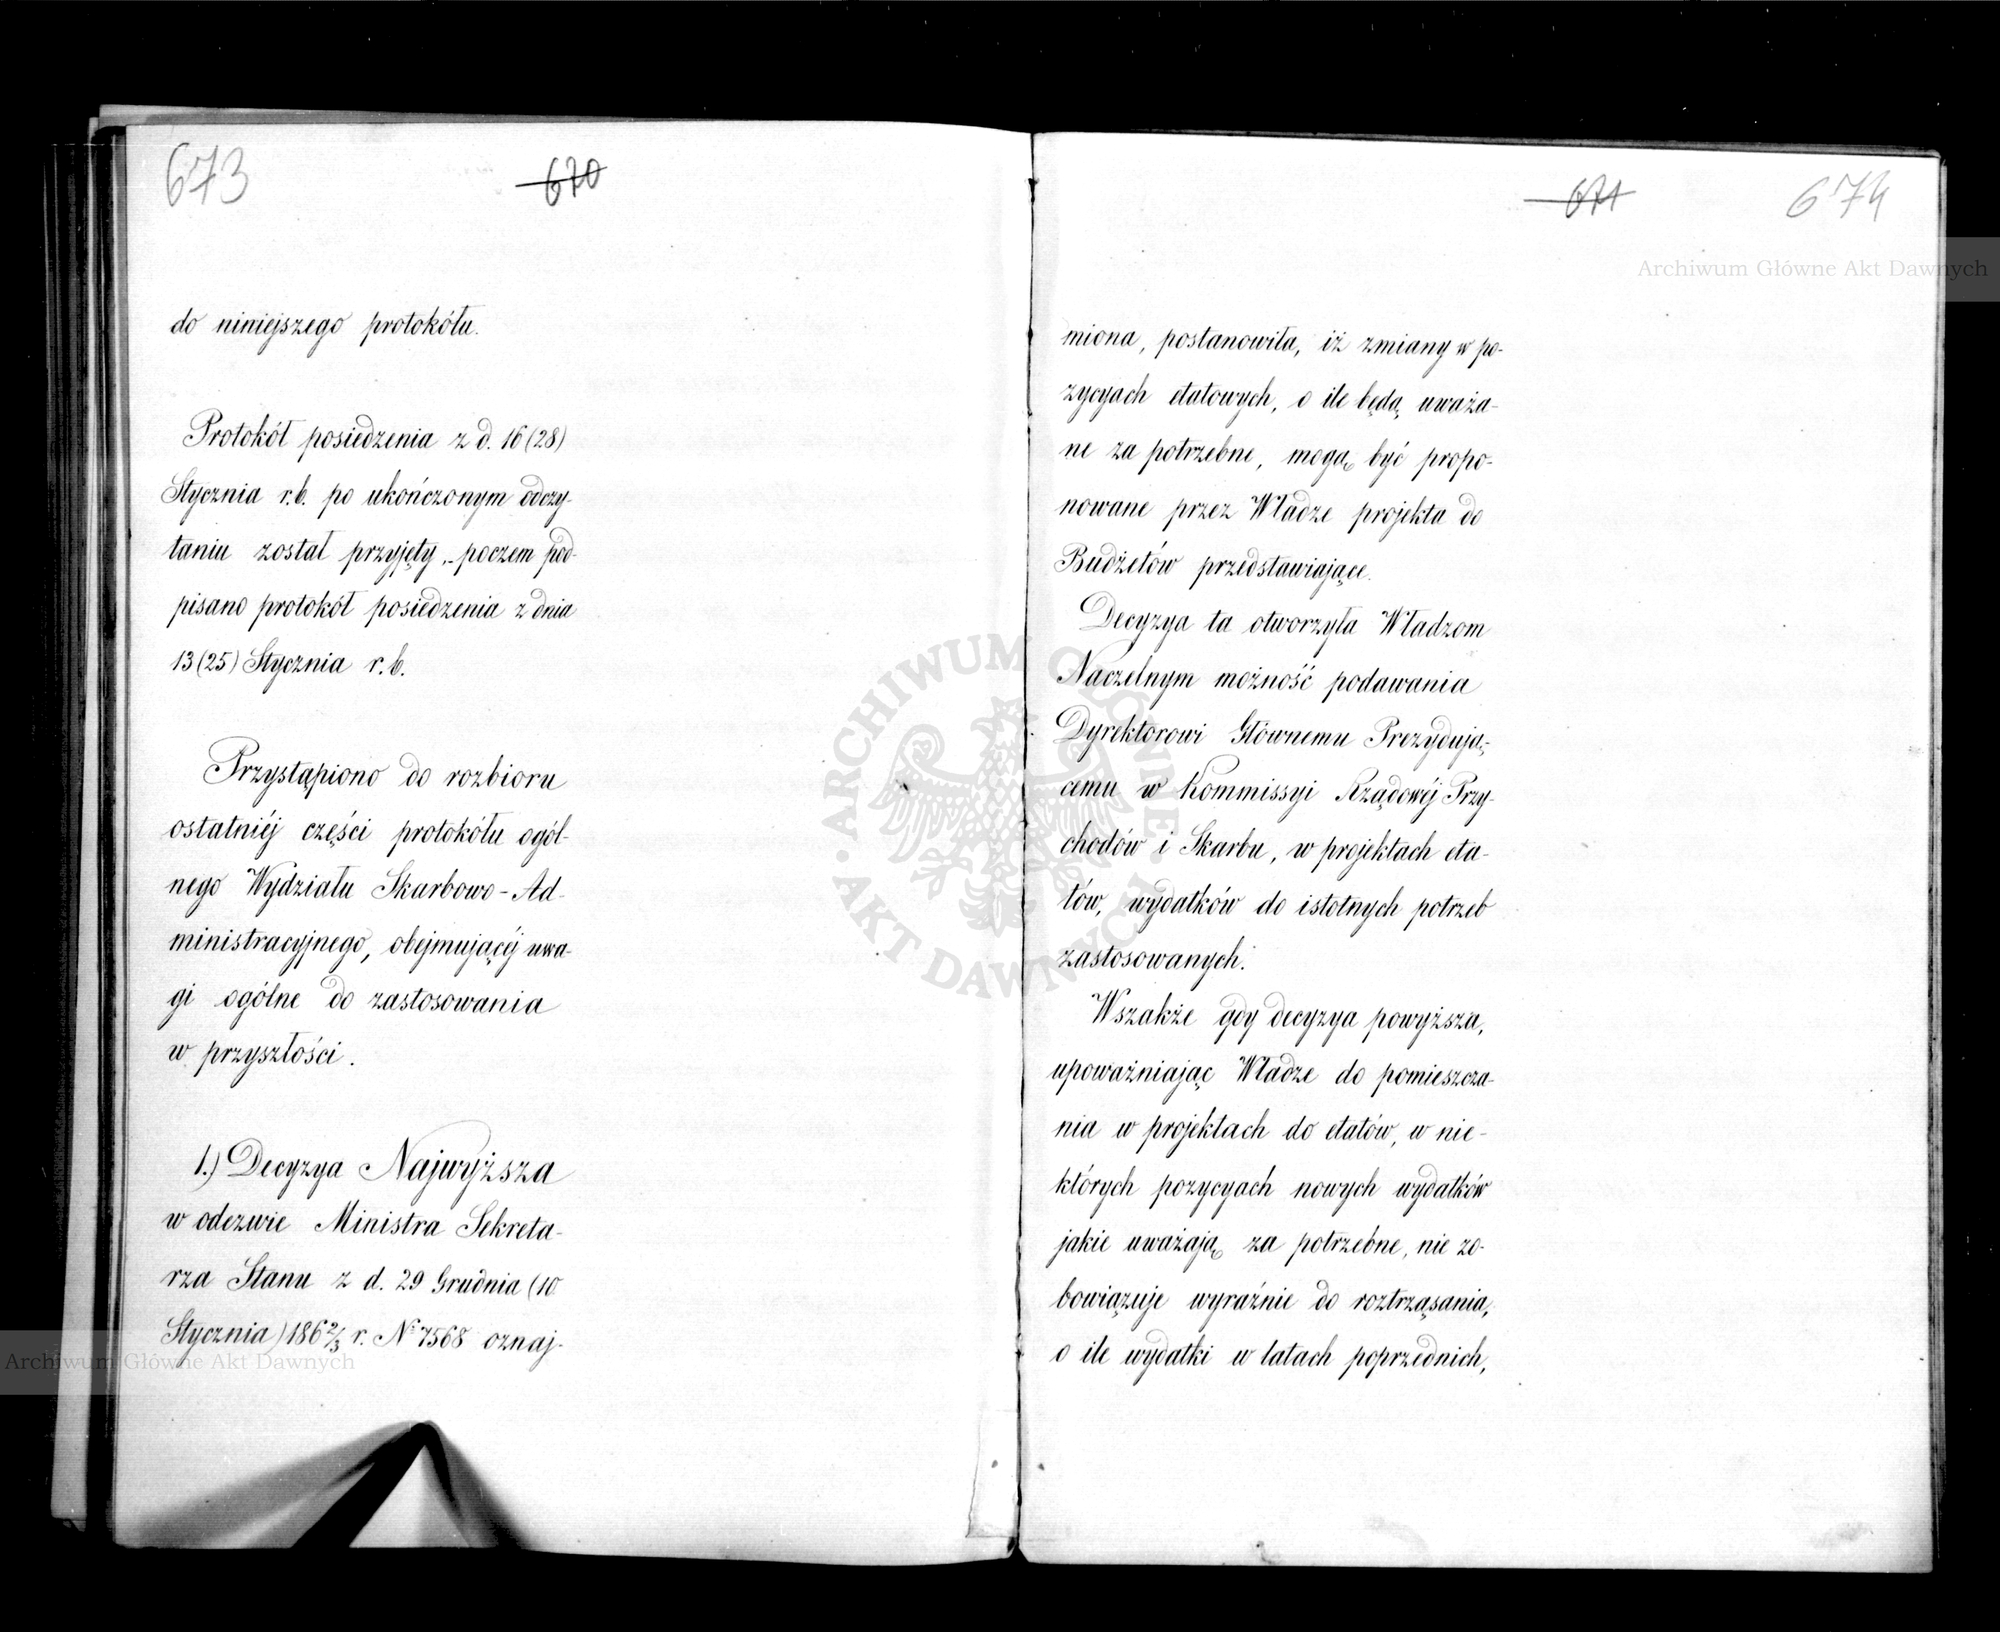 673
670
do niniejszego protokółu.
Protokół posiedzenia z d. 16 (28)
Stycznia r. b. po ukończonym odczy-
taniu został przyjęty, poczem pod-
pisano protokół posiedzenia z dnia
13 (25) Stycznia r. b.
Przystąpiono do rozbioru
ostatniéj części protokółu ogól-
nego Wydziału Skarbowo-Ad-
ministracyjnego, obejmującéj uwa-
gi ogólne do zastosowania
w przyszłości.
1.) Decyzya Najwyższa
w odezwie Ministra Sekreta-
rza Stanu z d. 29 Grudnia (10
Stycznia) 186 2/3 r. № 7568 oznaj-
671
674
miona, postanowiła, iż zmiany w po-
zycyach etatowych, o ile będą uważa-
ne za potrzebne, mogą być propo-
nowane przez Władze projekta do
Budżetów przedstawiające.
Decyzya ta otworzyła Władzom
Naczelnym możność podawania
Dyrektorowi Głównemu Prezydują-
cemu w Kommissyi Rządowéj Przy-
chodów i Skarbu, w projektach eta-
tów, wydatków do istotnych potrzeb
zastosowanych.
Wszakże gdy decyzya powyższa,
upoważniając Władze do pomieszcza-
nia w projektach do etatów, w nie-
których pozycyach nowych wydatków
jakie uważają za potrzebne, nie zo-
bowiązuje wyraźnie do roztrząsania,
o ile wydatki w latach poprzednich,
Archiwum Główne Akt Dawnych
ARCHIWUM GŁÓWNE
AKT DAWNYCH
Archiwum Główne Akt Dawnych